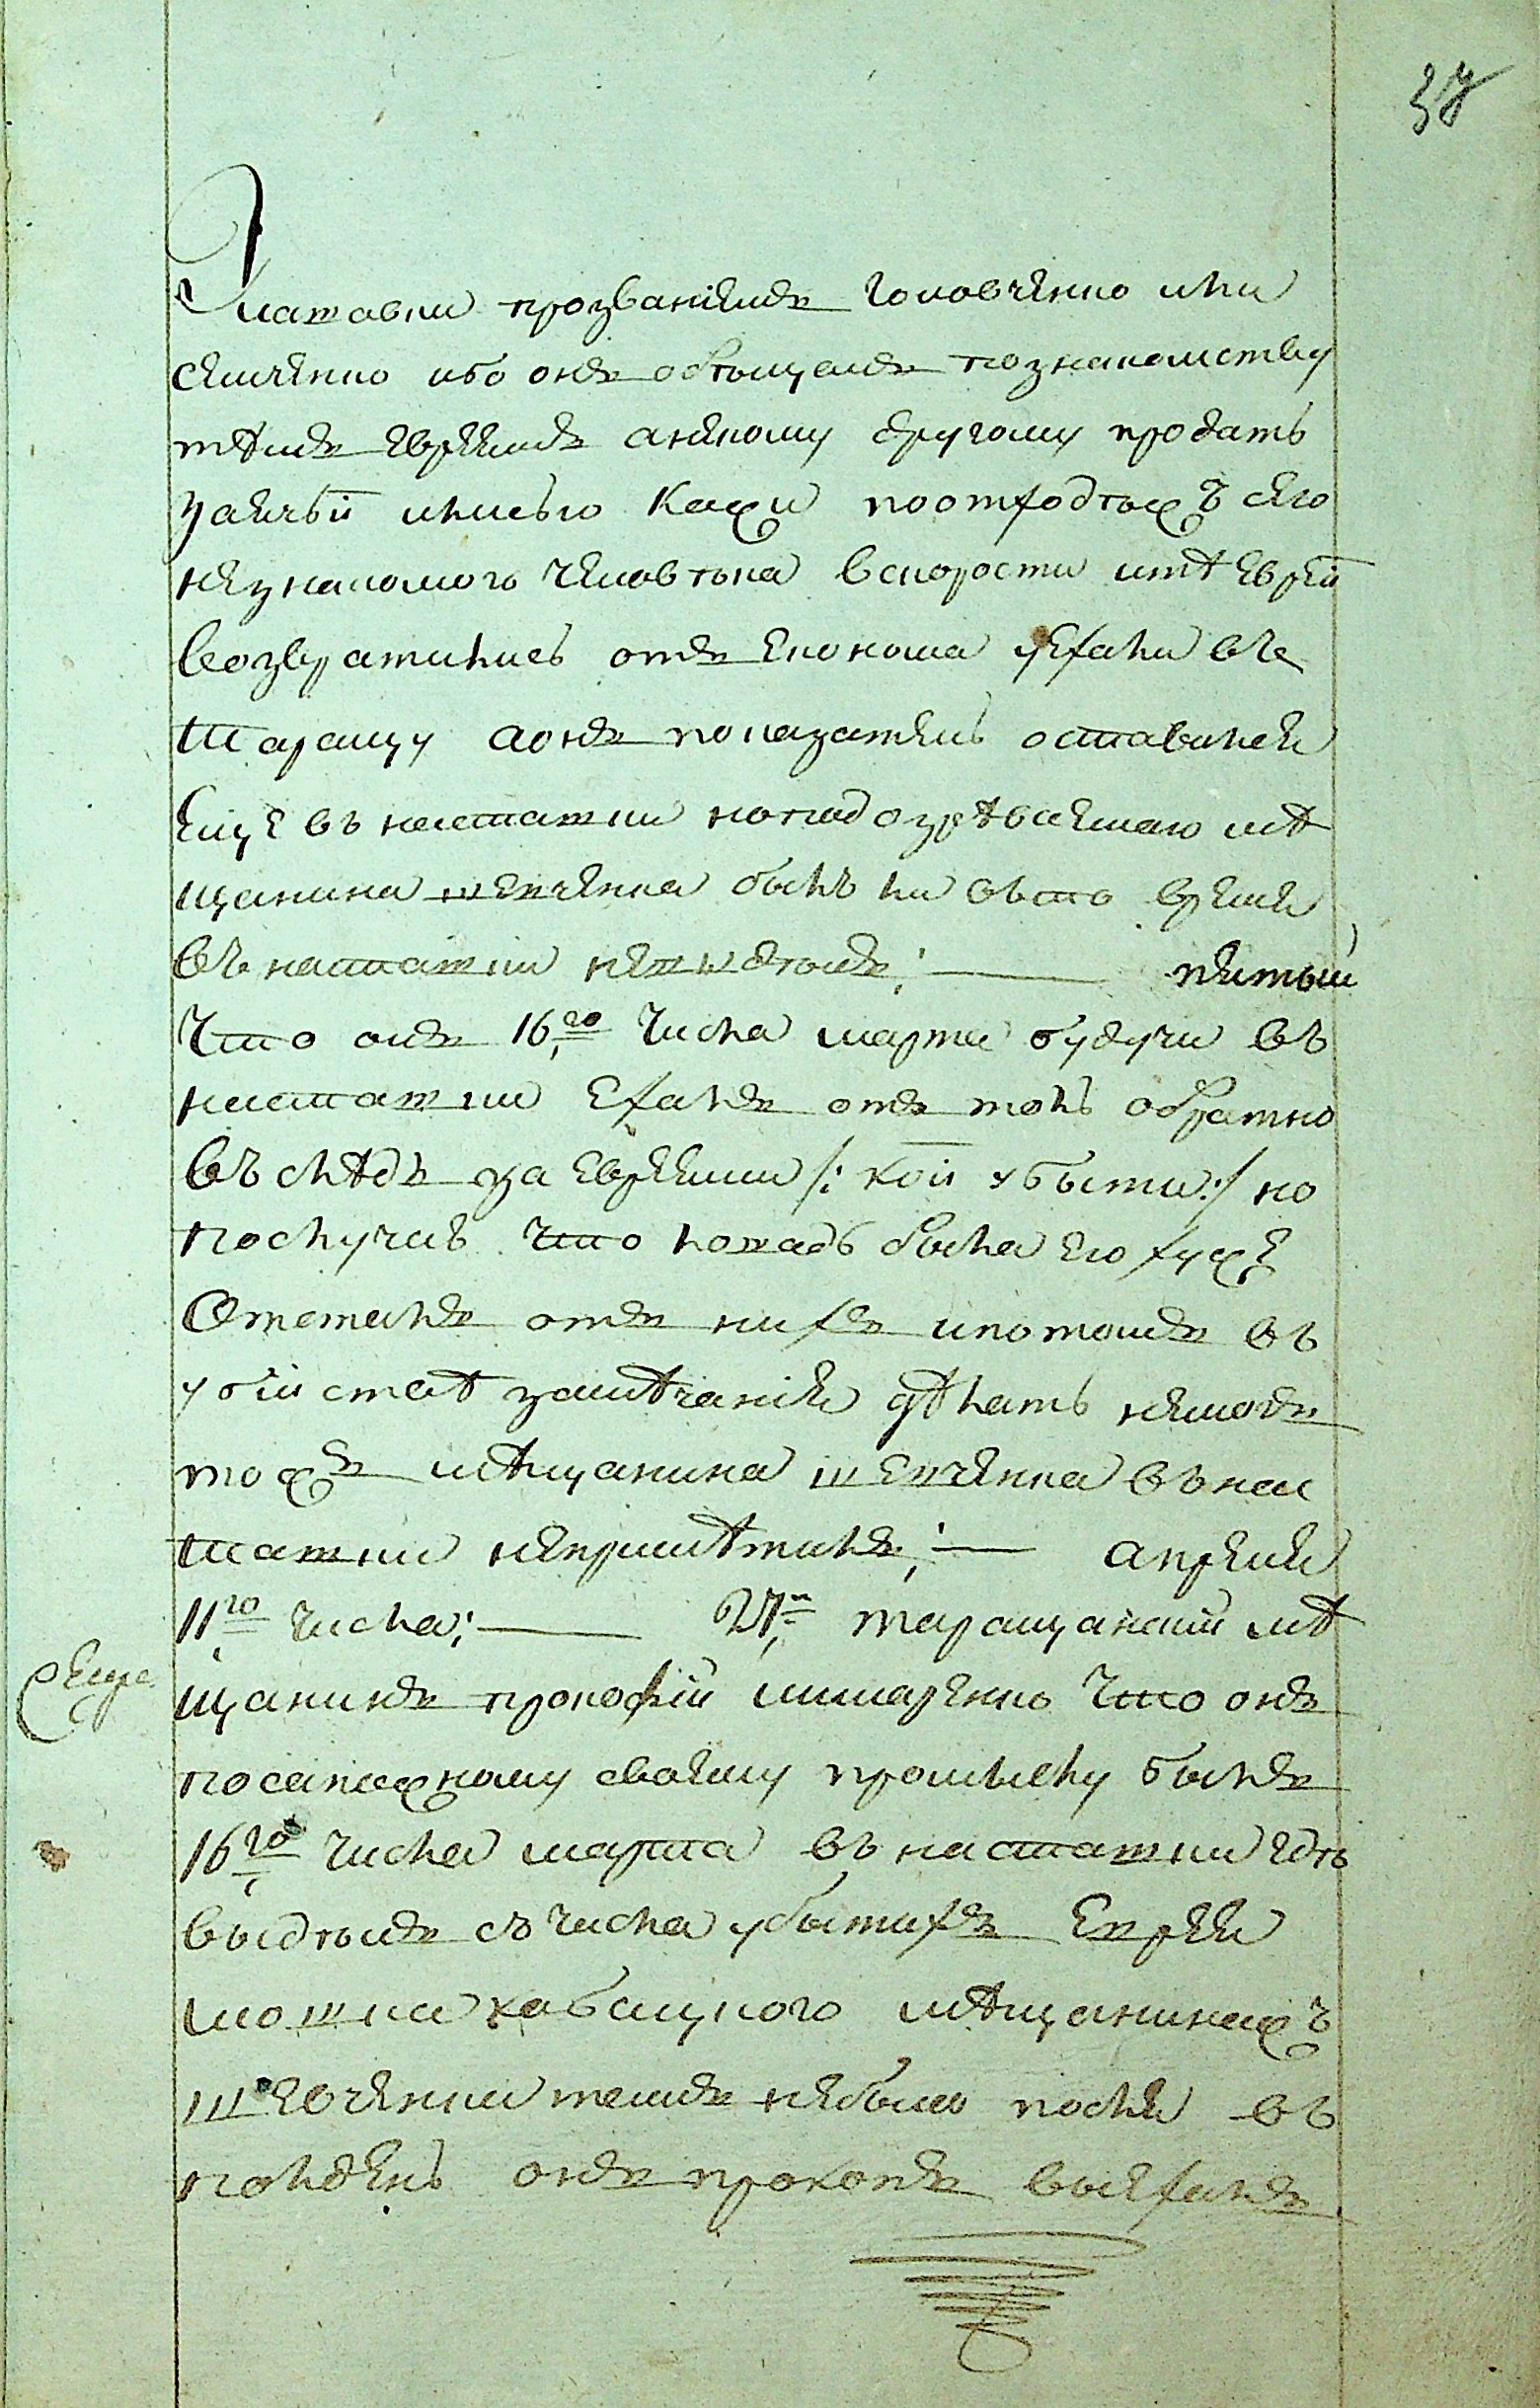 37
прозваніемъ Головченко или
Семченко ибо онъ обѣщалъ познакомству
тѣмъ Евреямъ анекому другому продать
заячьи илисьи кажи поотходѣ жъ сего
незнакомого человѣка вскорости итѣ Евреи
возвратились отъ Економа уехали въ
Таращу аонъ показатель оставался
еще въ насташки ноподозрѣваемаго мѣ
щанина шевченка былъ ли овъто время
въ насташки невидѣлъ; — пятый
что онъ 16го числа марта будучи въ
насташки ехалъ отъ толь обратно
въ слѣдъ за Евреями /: кои убыты :/ но
поелику что лошадь была Его хуже
Отсталъ отъ нихъ и потомъ въ
убійствѣ замѣчанія дѣлать неможе
тожъ мѣщанина шевченка въ нас
ташки неприметилъ; — апреля
11го числа; — Таращанскій мѣ
Еще
щанинъ прокофій лимаренко что онъ
посапожному своему промыслу былъ
16го числа марта въ насташки гдѣ
выдѣлъ съ числа убытыхъ Еврея
мошка кабацкого мѣщанинажъ
шевченка тамъ небыло после въ
полдень онъ прокопъ выехалъ